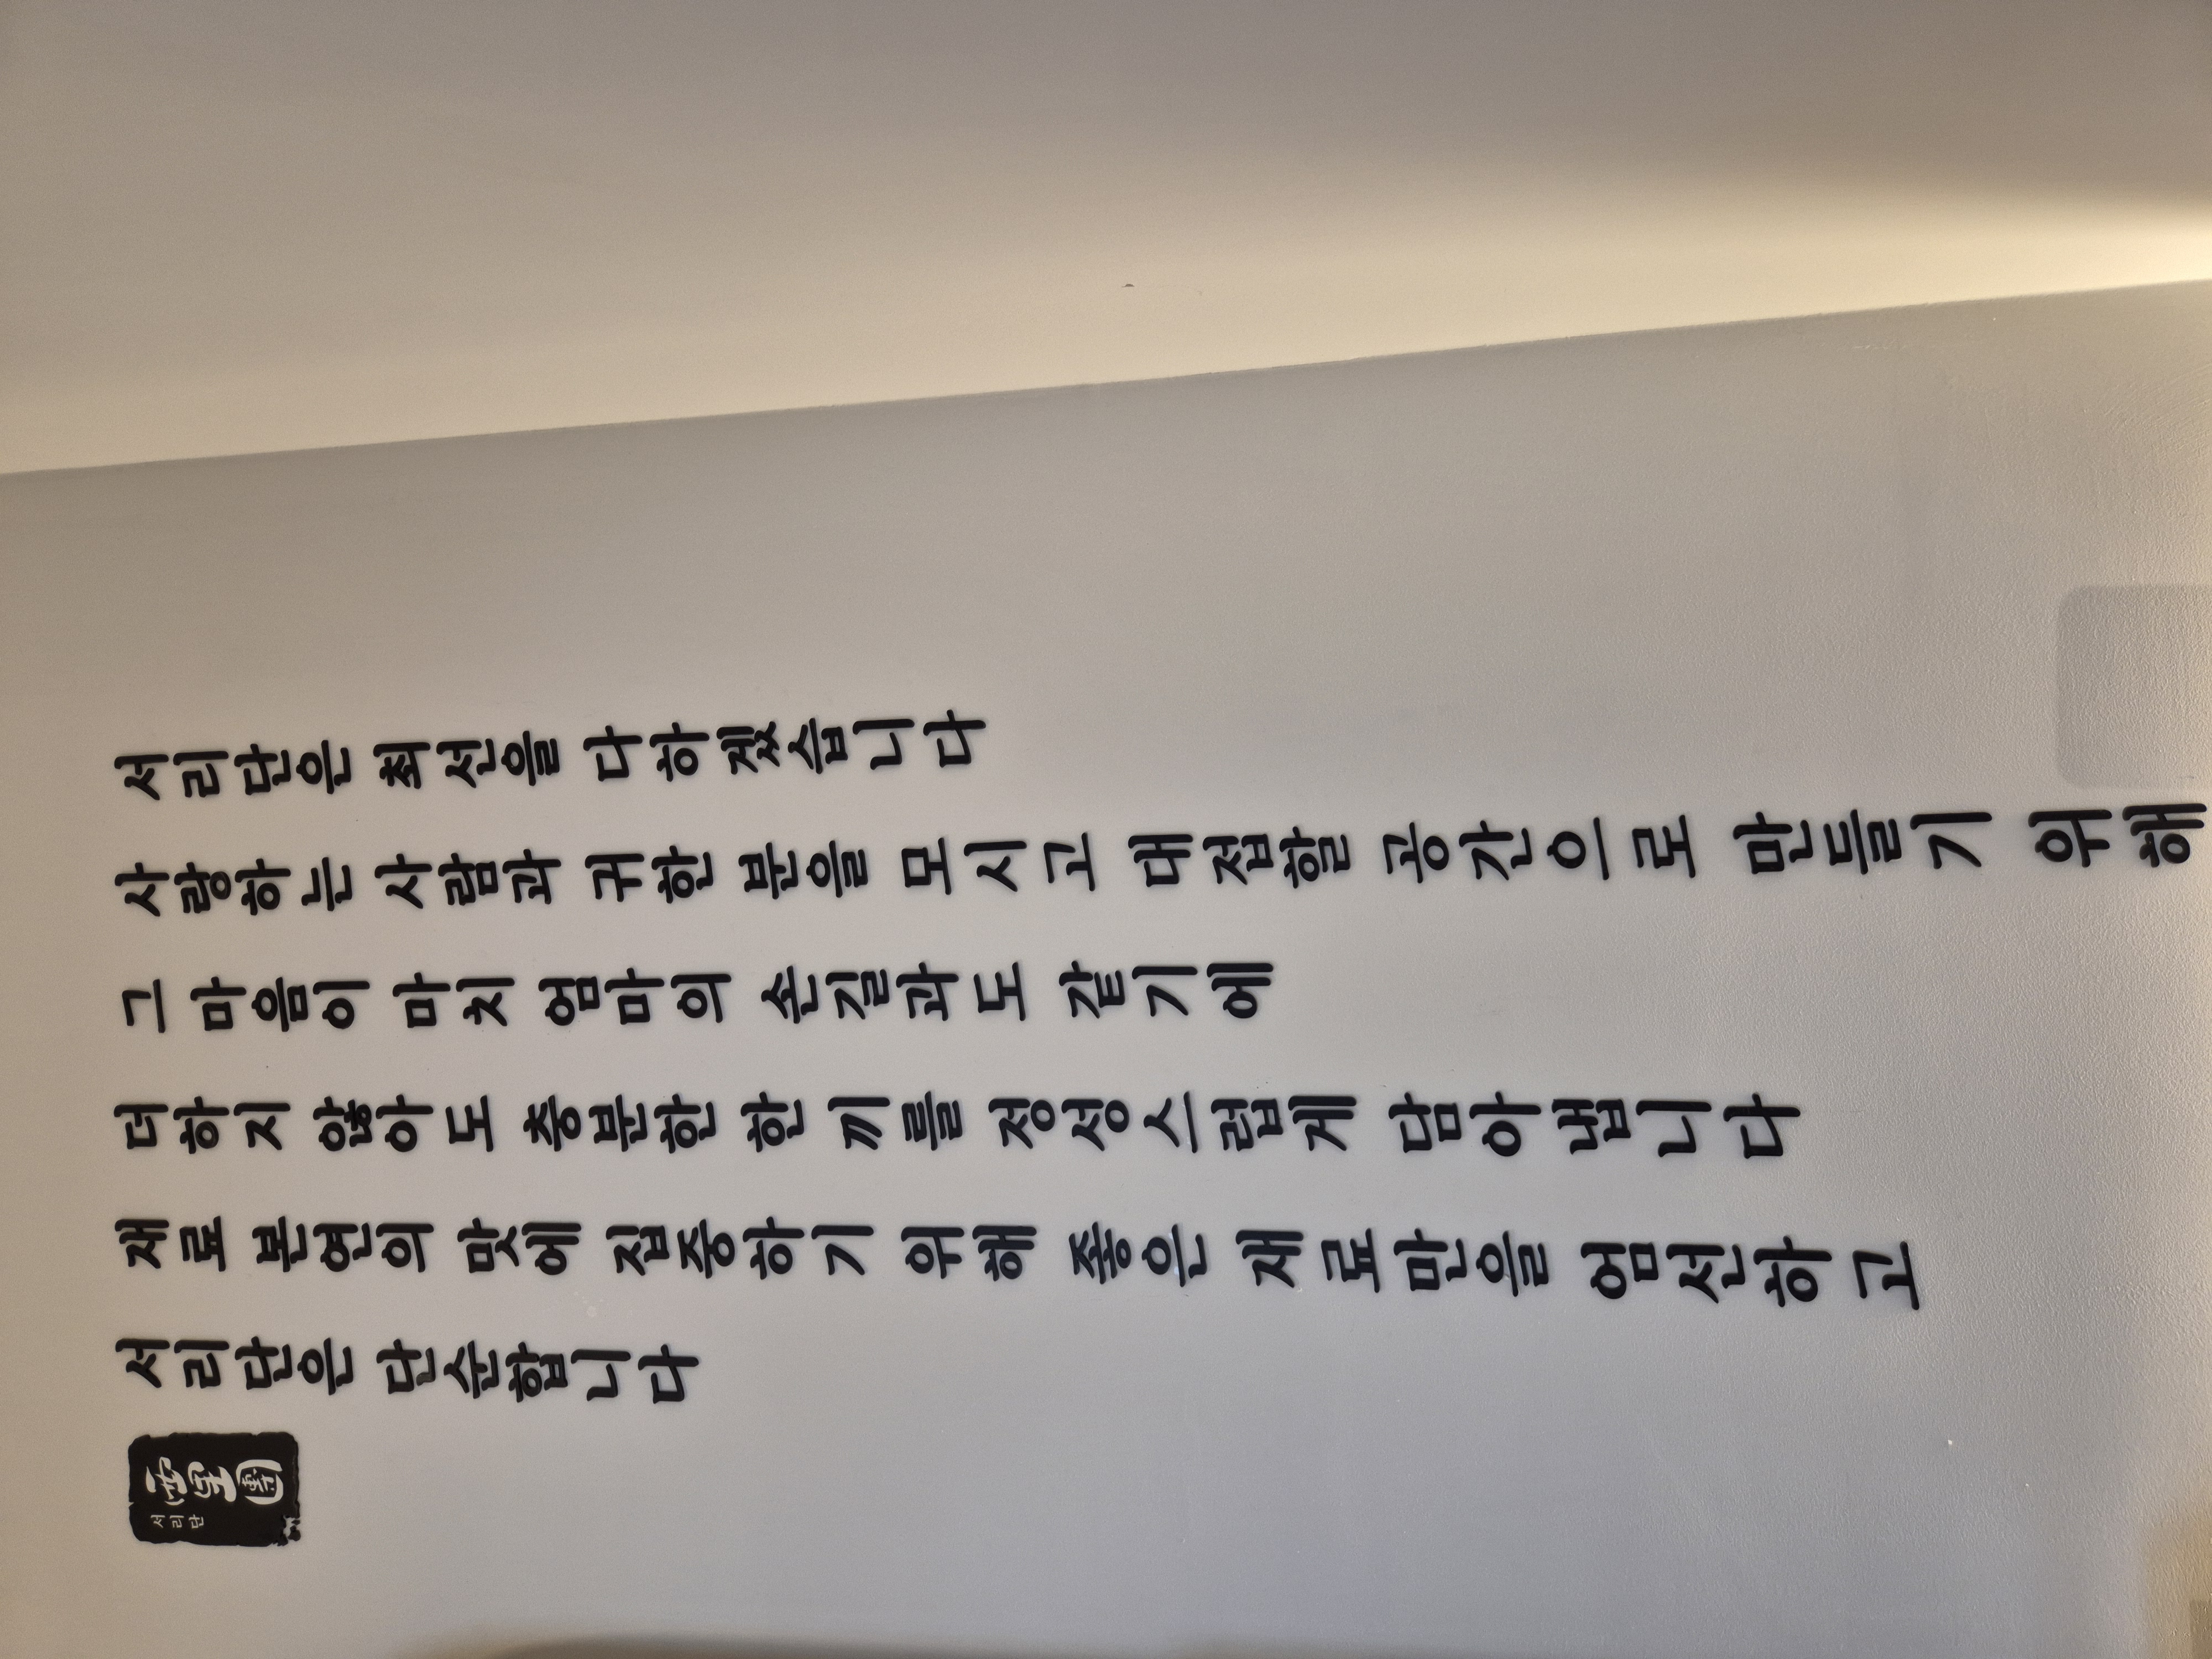 서리단
서리단은 단순합니다
재료 본연의 맛에 집중하기 위해 좋은 재료만을 엄선하고
더하지 않아도 충분한 한 끼를 정성스럽게 담아냅니다
그 마음이 마치 엄마의 손길과도 같기에
사랑하는 사람과 귀한 분을 모시고 대접할 공간으로 만들기 위해
서리단은 최선을 다하겠습니다